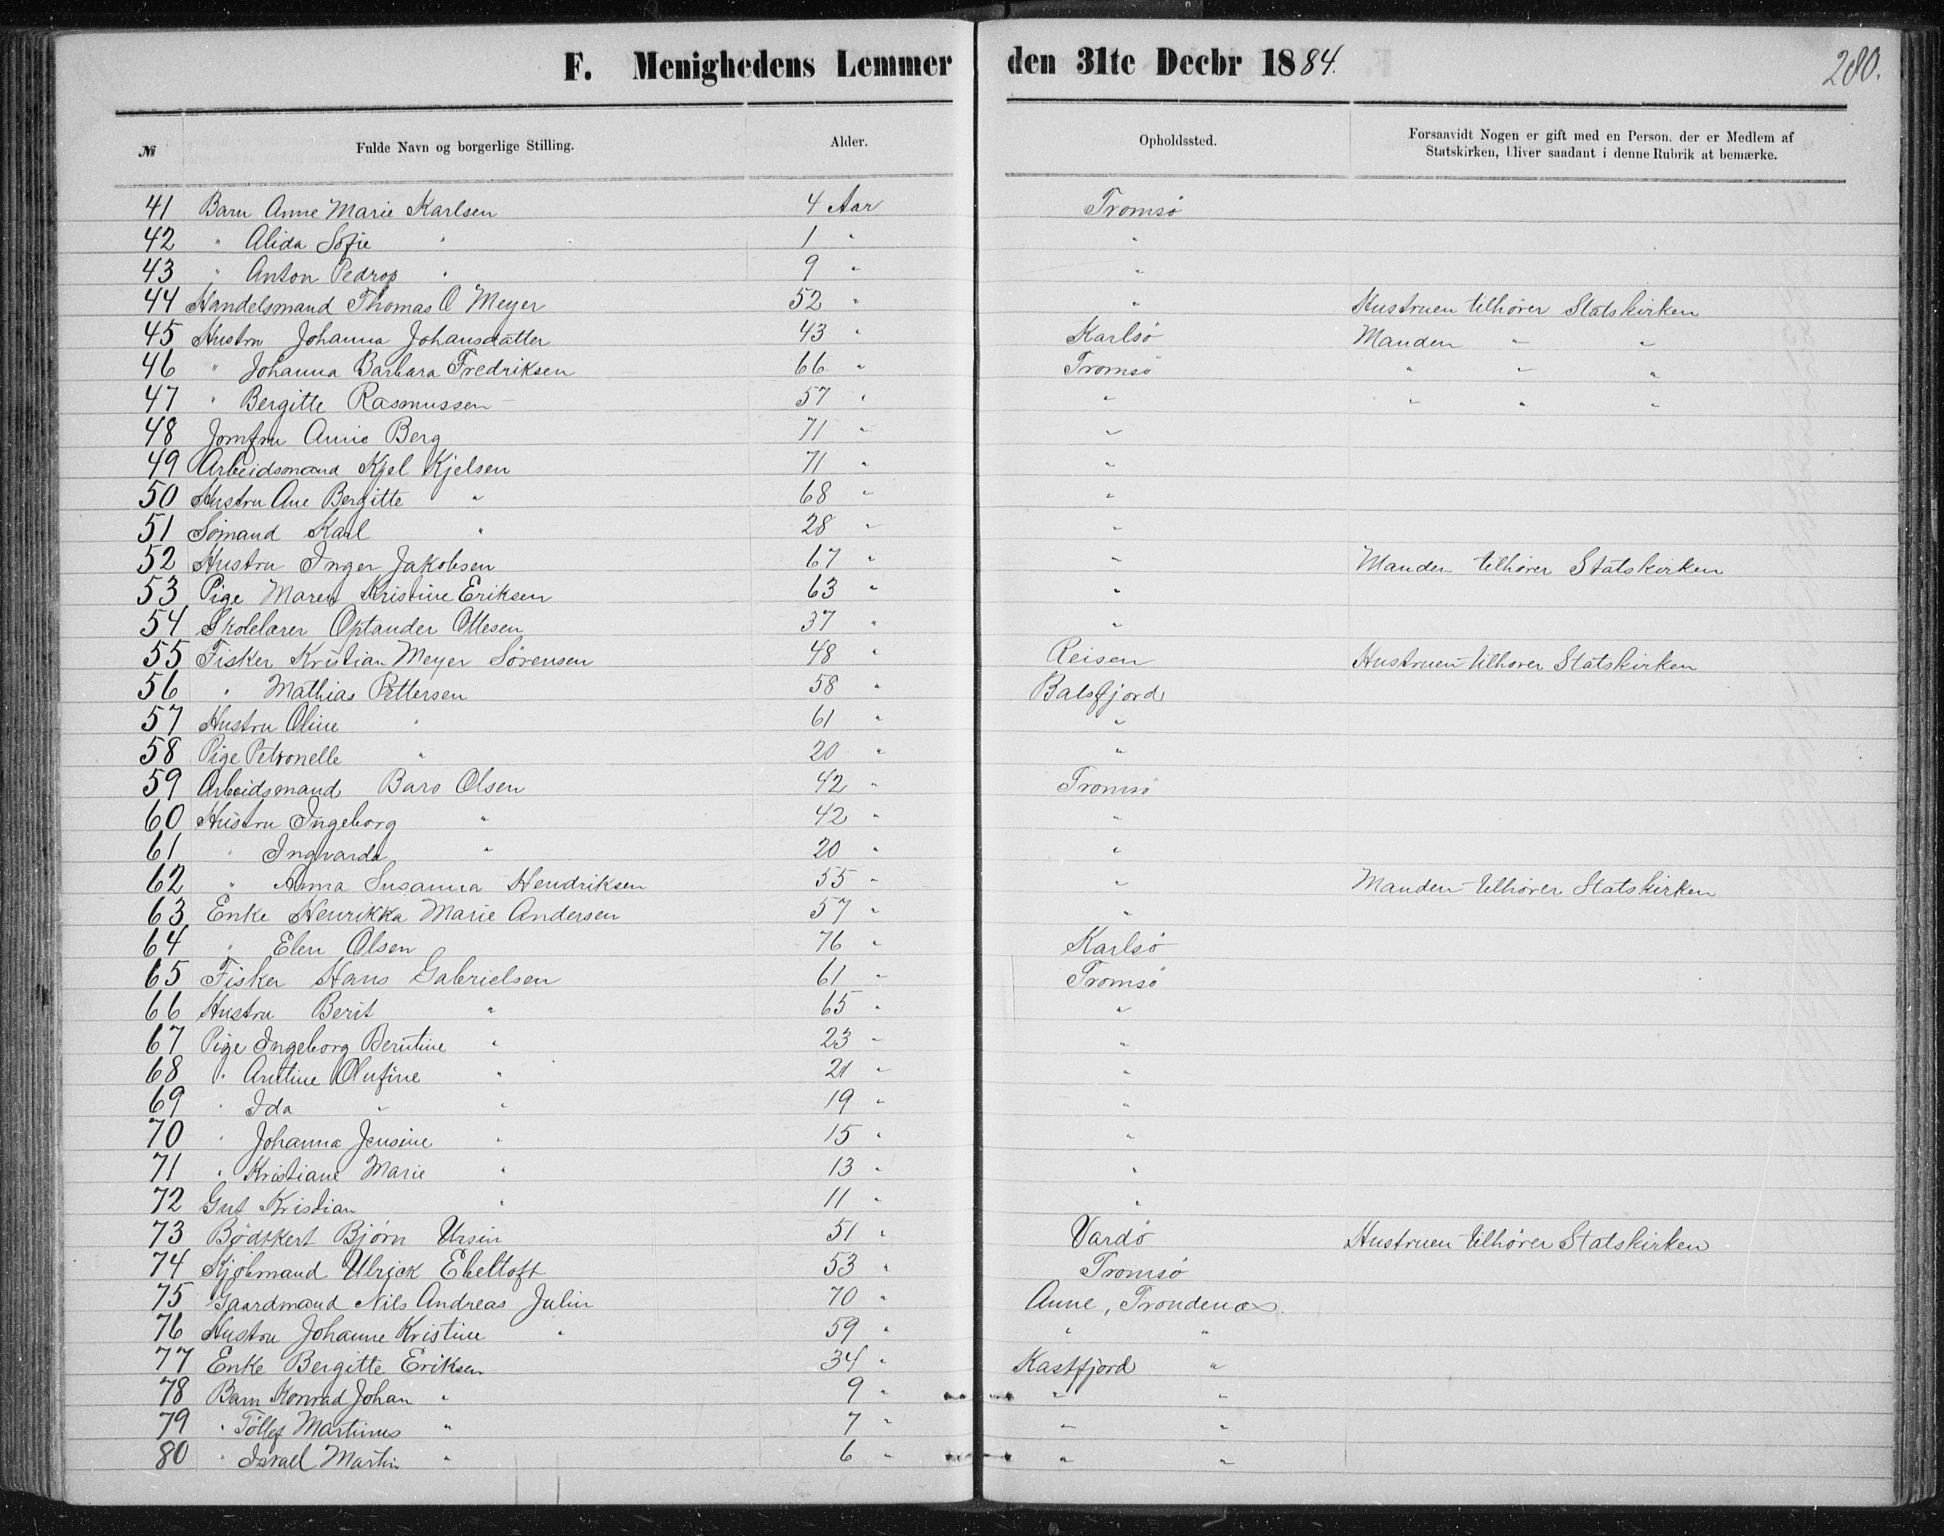 F. Menighedens Lemmer den 31te Decbr 1884.
280.
№ Fulde Navn og borgerlige Stilling. Alder. Opholdssted. Forsaavidt Nogen er gift med en Person, der er Medlem af
Statskirken, bliver saadant i denne Rubrik at bemærke.
41 Barn Anne Marie Karlsen 4 Aar Tromsø
42 " Alida Sofie " 1 " "
43 " Anton Pedrop " 9 " "
44 Handelsmand Thomas O Meyer 52 " " Hustruen tilhører Statskirken
45 Hustru Johanna Johansdatter 43 " Karlsø Manden " "
46 " Johanna Barbara Fredriksen 66 " Tromsø " " "
47 " Bergitte Rasmussen 57 " " " " "
48 Jomfru Anne Berg 71 " "
49 Arbeidsmand Kjel Kjelsen 71 " "
50 Hustru Ane Bergitte " 68 " "
51 Sømand Karl " 28 " "
52 Hustru Inger Jakobsen 67 " " Manden tilhører Statskirken
53 Pige Maren Kristine Eriksen 63 " "
54 Skolelærer Ottesen 37 " "
55 Fisker Kristian Meyer Sørensen 48 " Reisen Hustruen tilhører Statskirken
56 " Mathias Pettersen 58 " Balsfjord
57 Hustru Oline " 61 " "
58 Pige Petronelle " 20 " "
59 Arbeidsmand Baro Olsen 42 " Tromsø
60 Hustru Ingeborg " 42 " "
61 " Ingvarda " 20 " "
62 " Anna Susanna Hendriksen 55 " " Manden tilhører Statskirken
63 Enke Henrikka Marie Andersen 57 " "
64 " Elen Olsen 76 " Karlsø
65 Fisker Hans Gabrielsen 61 " Tromsø
66 Hustru Berit " 65 " "
67 Pige Ingeborg Berntine " 23 " "
68 " Antine Olufine " 21 " "
69 " Ida " " 19 " "
70 " Johanna Jensine " 15 " "
71 " Kristiane Marie " 13 " "
72 Gut Kristian " 11 " "
73 Bødtkert Bjørn Ursin 51 " Vardø Hustruen tilhører Statskirken
74 Kjøbmand Ulrick Ebeltoft 53 " Tromsø
75 Gaardmand Nils Andreas Julin 70 " Anne, Trondenæs.
76 Hustru Johanne Kristine " 59 " " "
77 Enke Bergitte Eriksen 34 " Kastfjord "
78 Barn Konrad Johan " 9 " " "
79 " Tøllef Martinus " 7 " " "
80 " Israel Martin " 6 " " "